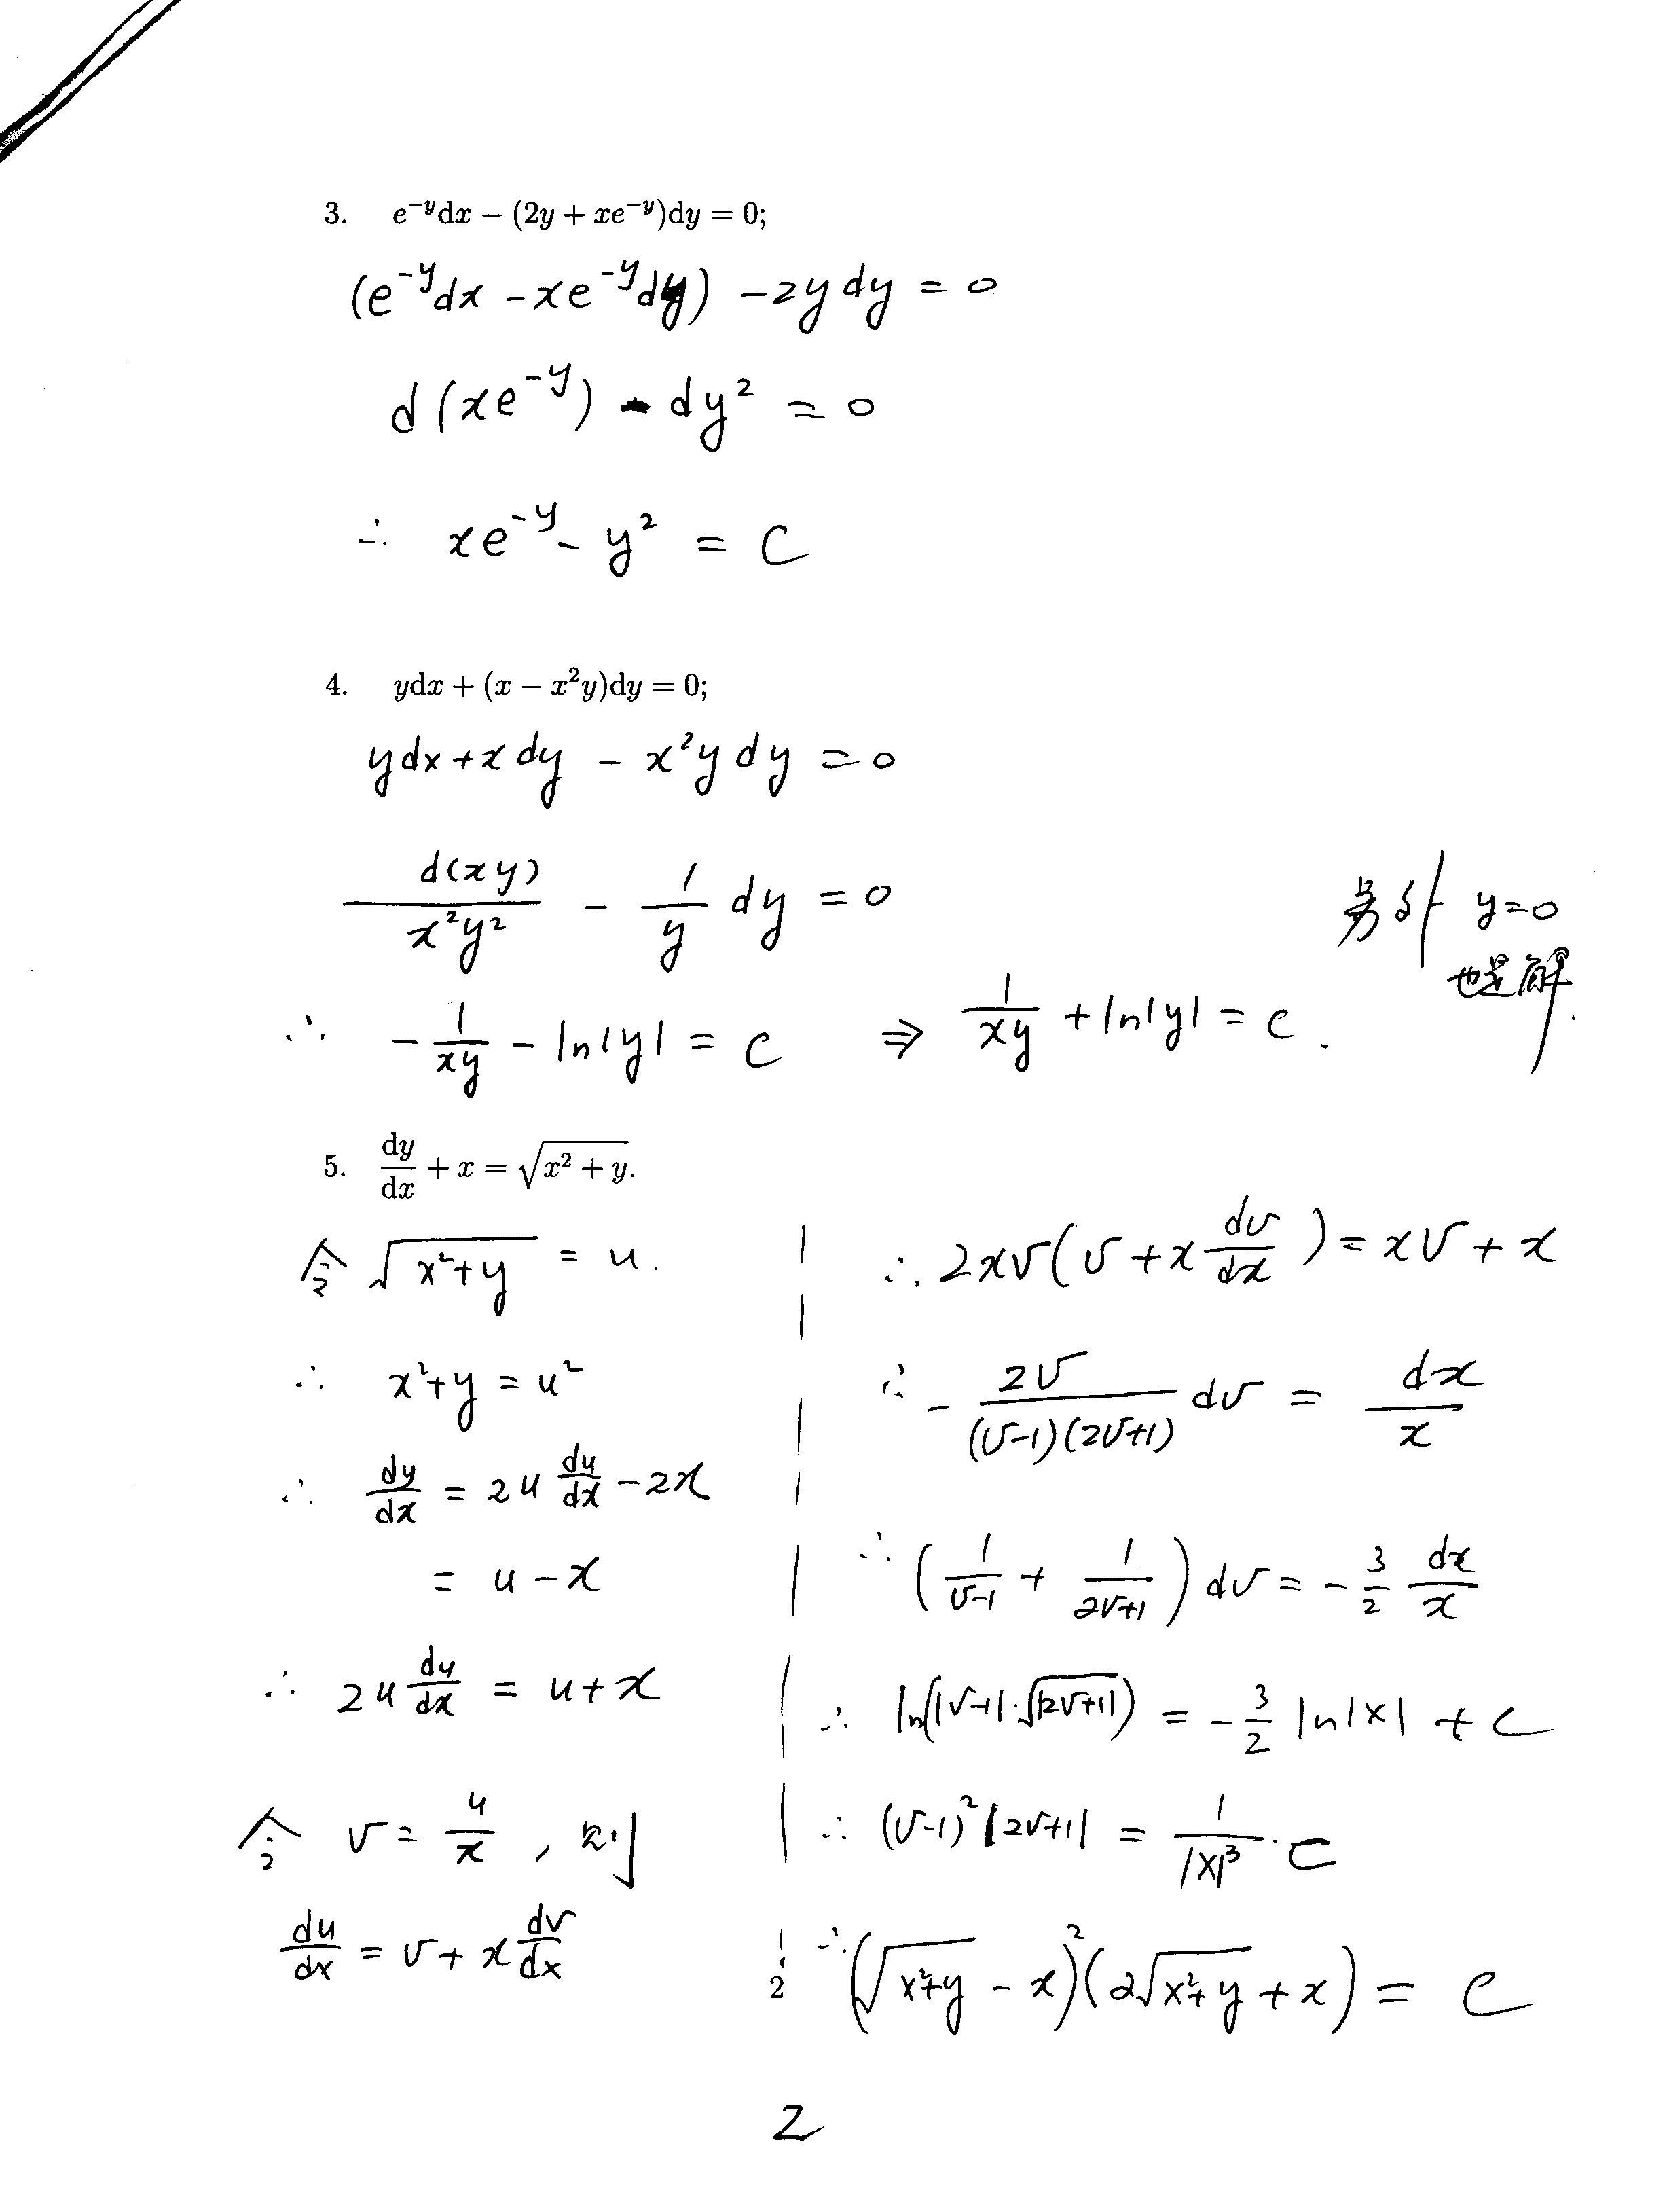 3. e^{-y}dx − (2y + xe^{-y})dy = 0;
(e^{-y}dx − xe^{-y}dy) − 2y dy = 0
d(xe^{-y}) - dy² = 0
∴ xe^{-y} − y² = C
4. ydx + (x − x²y)dy = 0;
ydx + x dy − x²y dy = 0
\frac{d(xy)}{x²y²} − \frac{1}{y} dy = 0
另外 y=0
也是解.
∴ −\frac{1}{xy} − ln|y| = C ⇒ \frac{1}{xy} + ln|y| = C.
5. \frac{dy}{dx} + x = \sqrt{x² + y}.
令 \sqrt{x²+y} = u.
∴ x²+y = u²
∴ \frac{dy}{dx} = 2u \frac{du}{dx} − 2x
= u − x
∴ 2u \frac{du}{dx} = u+x
令 v = \frac{u}{x}, 则
\frac{du}{dx} = v + x \frac{dv}{dx}
∴ 2xv(v + x \frac{dv}{dx}) = xv + x
∴ −\frac{2v}{(v-1)(2v+1)} dv = \frac{dx}{x}
∴ (\frac{1}{v-1} + \frac{1}{2v+1}) dv = −\frac{3}{2} \frac{dx}{x}
∴ ln(|v-1|·\sqrt{|2v+1|}) = −\frac{3}{2} ln|x| + C
∴ (v-1)²|2v+1| = \frac{1}{|x|³}·C
∴ (\sqrt{x²+y} − x)²(2\sqrt{x²+y} + x) = C
2
2